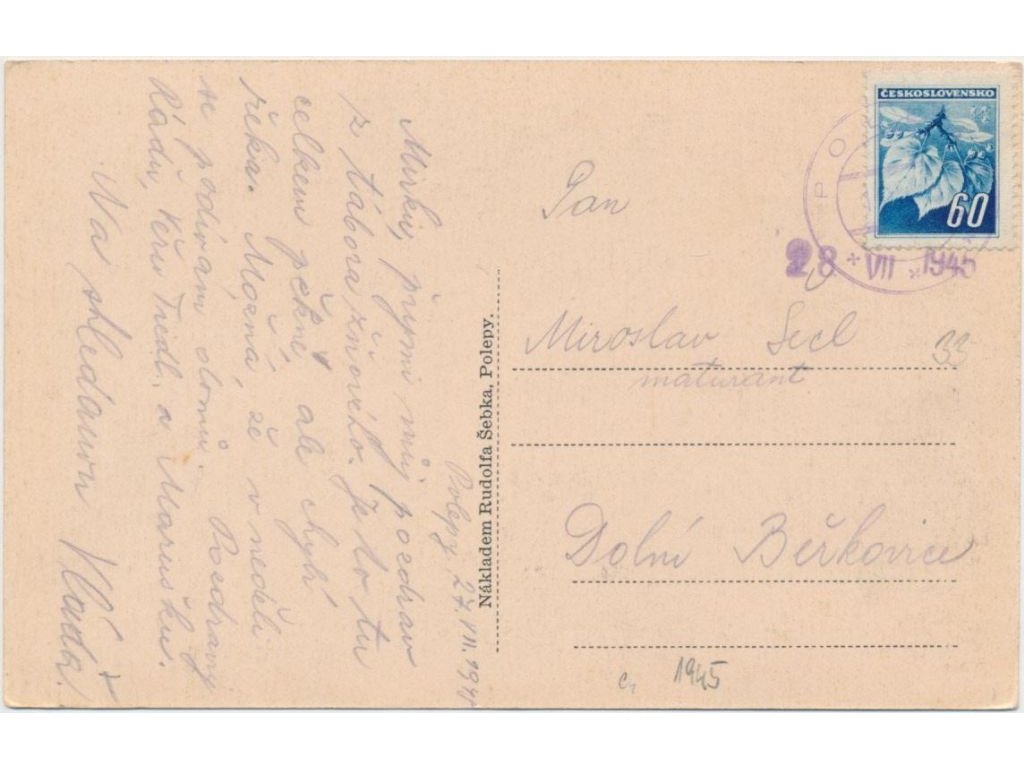 Polepy, 27. VII. 1945
Mirku, přijmi můj pozdrav
z tábora žňového. Je to tu
celkem pěkné, ale chybí
řeka. Možná, že v neděli
se podívám domů. Pozdravy
Ládu, Věru a Marušku.
Na shledanou Vláďa!
Nákladem Rudolfa Šebka, Polepy.
ČESKOSLOVENSKO
60
PO
28 * VII * 1945
Pan
Miroslav Secl
maturant
33
Dolní Beřkovice
1945